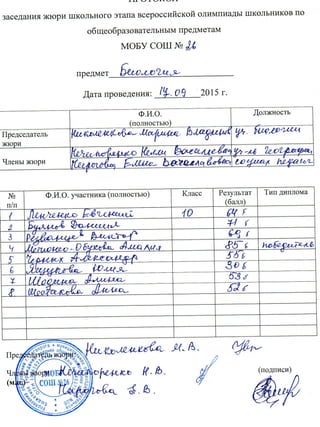 ПРОТОКОЛ
заседания жюри школьного этапа всероссийской олимпиады школьников по
общеобразовательным предметам
МОБУ СОШ № 26
предмет Биология
Дата проведения: 17.09 2015 г.
Ф.И.О. (полностью) Должность
Председатель жюри Николенкова Марина уч. биологии
Члены жюри Нечипоренко Нелли Васильевна уч-ль географии,
Пирогова социал. педагог
№ п/п Ф.И.О. участника (полностью) Класс Результат (балл) Тип диплома
1 Евгений 10 64 б
2 Даниил 71 б
3 Виктор 69 б
4 Амалия 85 б победитель
5 Черных Александр 55 б
6 Юлия 30 б
7 Шодина Алина 53 б
8 Шестакова Анна 52 б
Председатель жюри: Николенкова М.В.
Члены жюри: Нечипоренко Н.В. (подписи)
(м.п.) Пирогова Э.В.